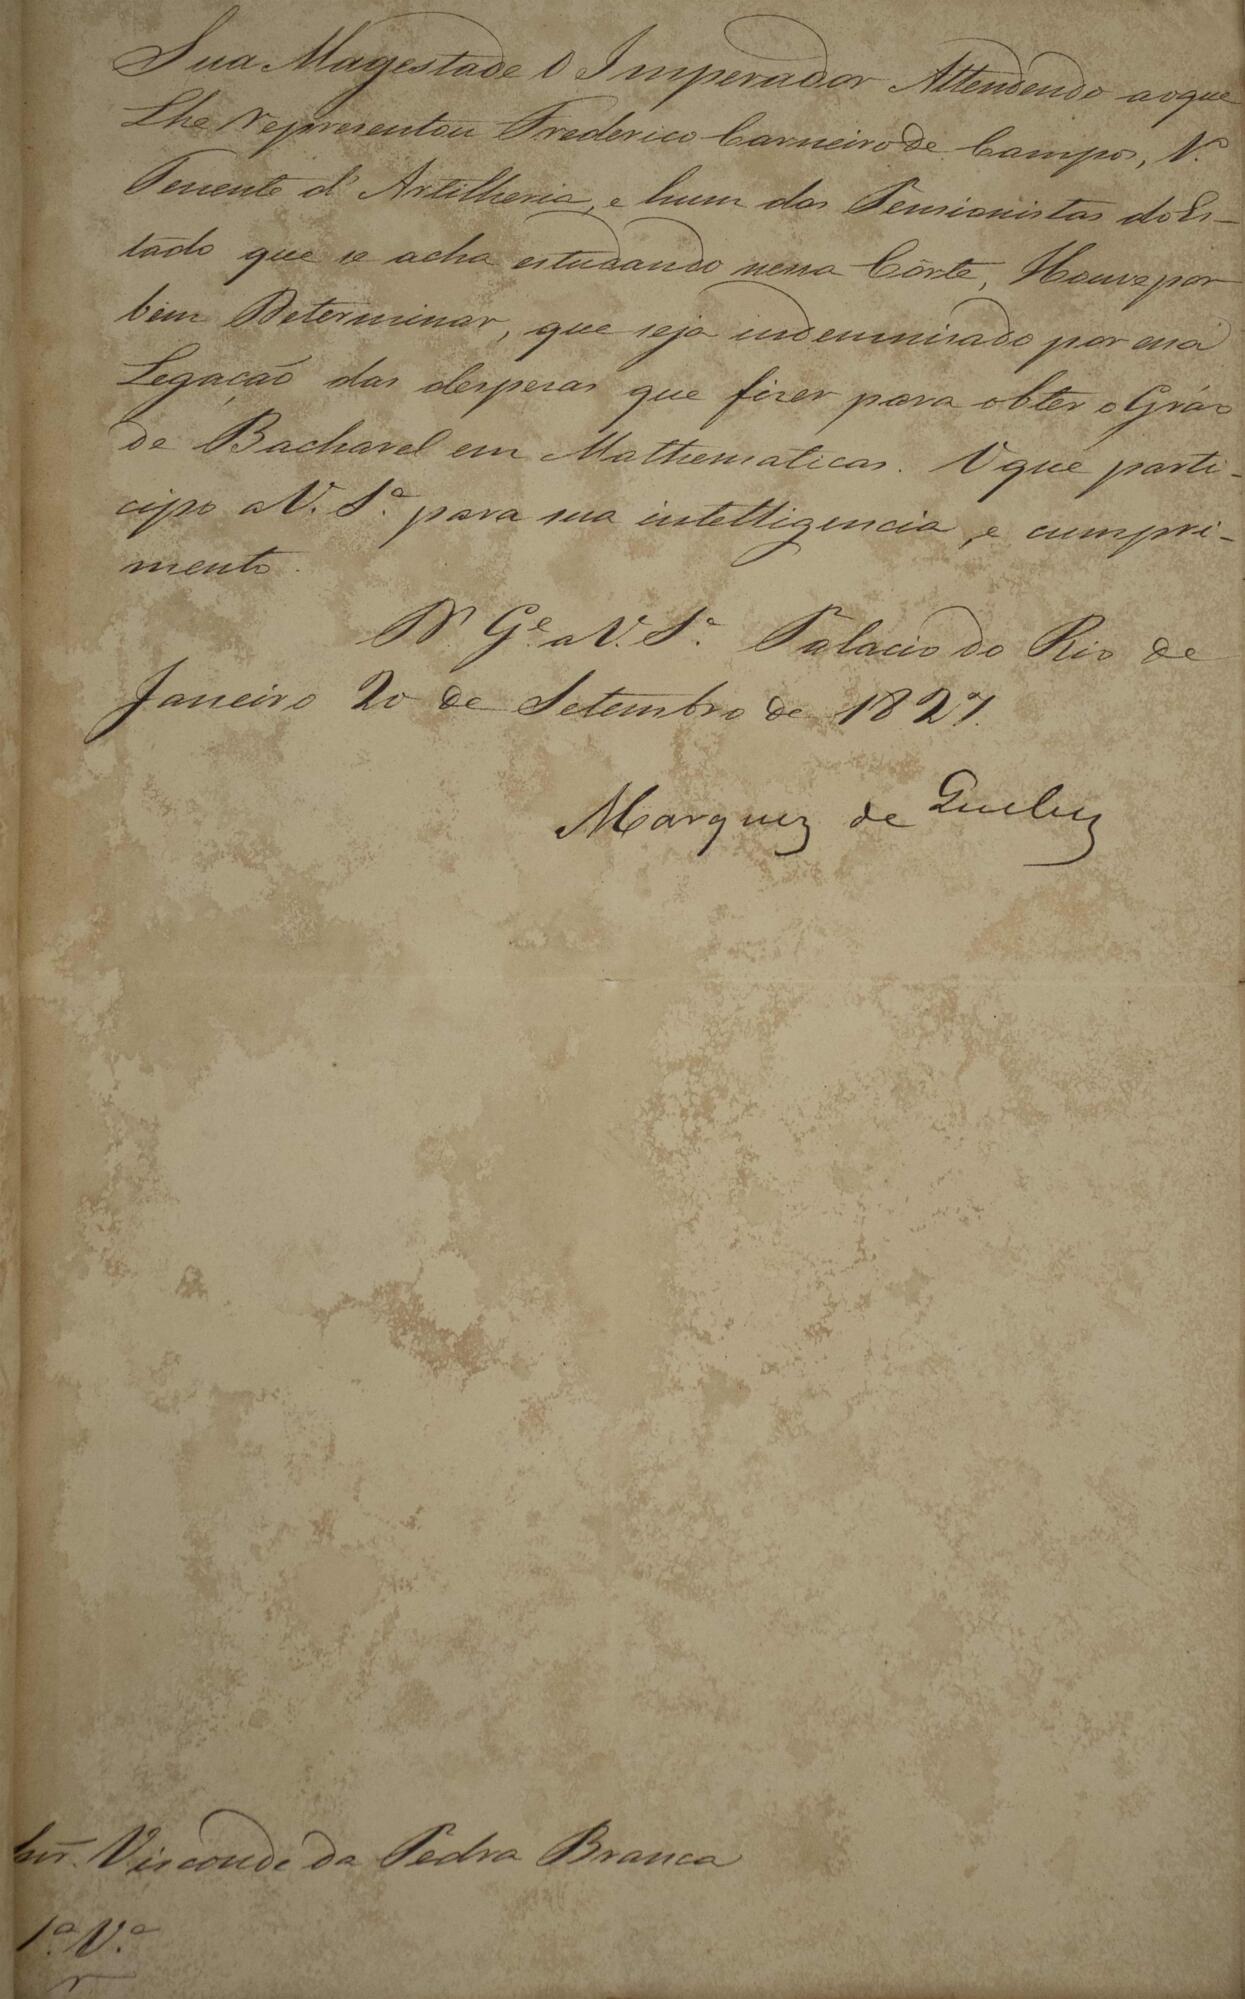 Sua Magestade O Imperador Attendendo ao que
Lhe representou Frederico Carneiro de Campos, 1.º
Tenente d'Artilheria, e hum dos Pensionistas do Es-
tado que se acha estudando nessa Côrte, Houve por
bem Determinar, que seja indemnisado por essa
Legação das despezas que fizer para obter o Gráo
de Bacharel em Mathematicas. O que parti-
cipo a V. S.ª para sua intelligencia, e cumpri-
mento.
D.s G.e a V. S.ª Palacio do Rio de
Janeiro 20 de Setembro de 1827.
Marquez de Queluz
Snr. Visconde da Pedra Branca
1.ª V.ª